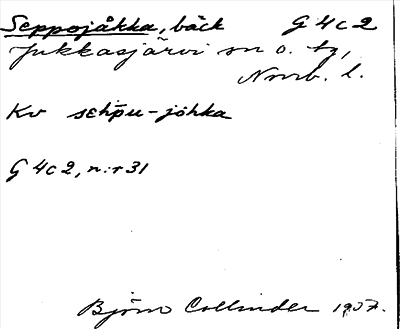 Seppojåkka, bäck G 4 c 2
Jukkasjärvi sn o. tg,
Norrb. l.
Kv sehpu-jóhka
G 4c2, n:r 31
Björn Collinder 1937.